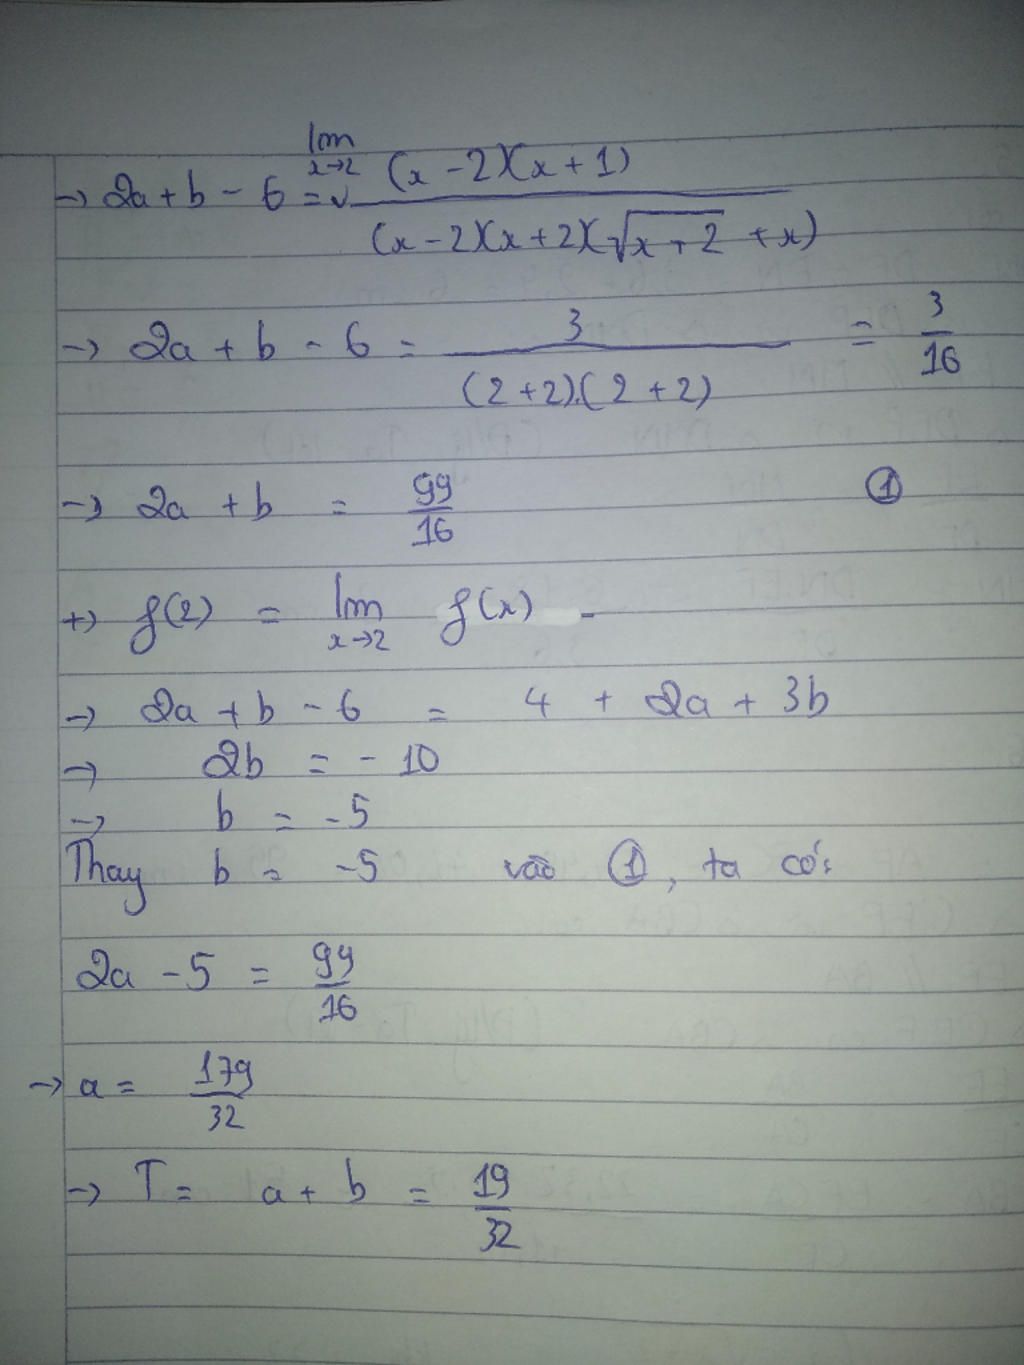 → 2a + b - 6 = lim x→2 (x - 2)(x + 1) / (x - 2)(x + 2)(√x + 2 + x)
→ 2a + b - 6 = 3 / (2 + 2).(2 + 2) = 3/16
→ 2a + b = 99/16 ①
+) f(2) = lim x→2 f(x)
→ 2a + b - 6 = 4 + 2a + 3b
→ 2b = - 10
→ b = -5
Thay b = -5 vào ①, ta có:
2a - 5 = 99/16
→ a = 179/32
→ T = a + b = 19/32